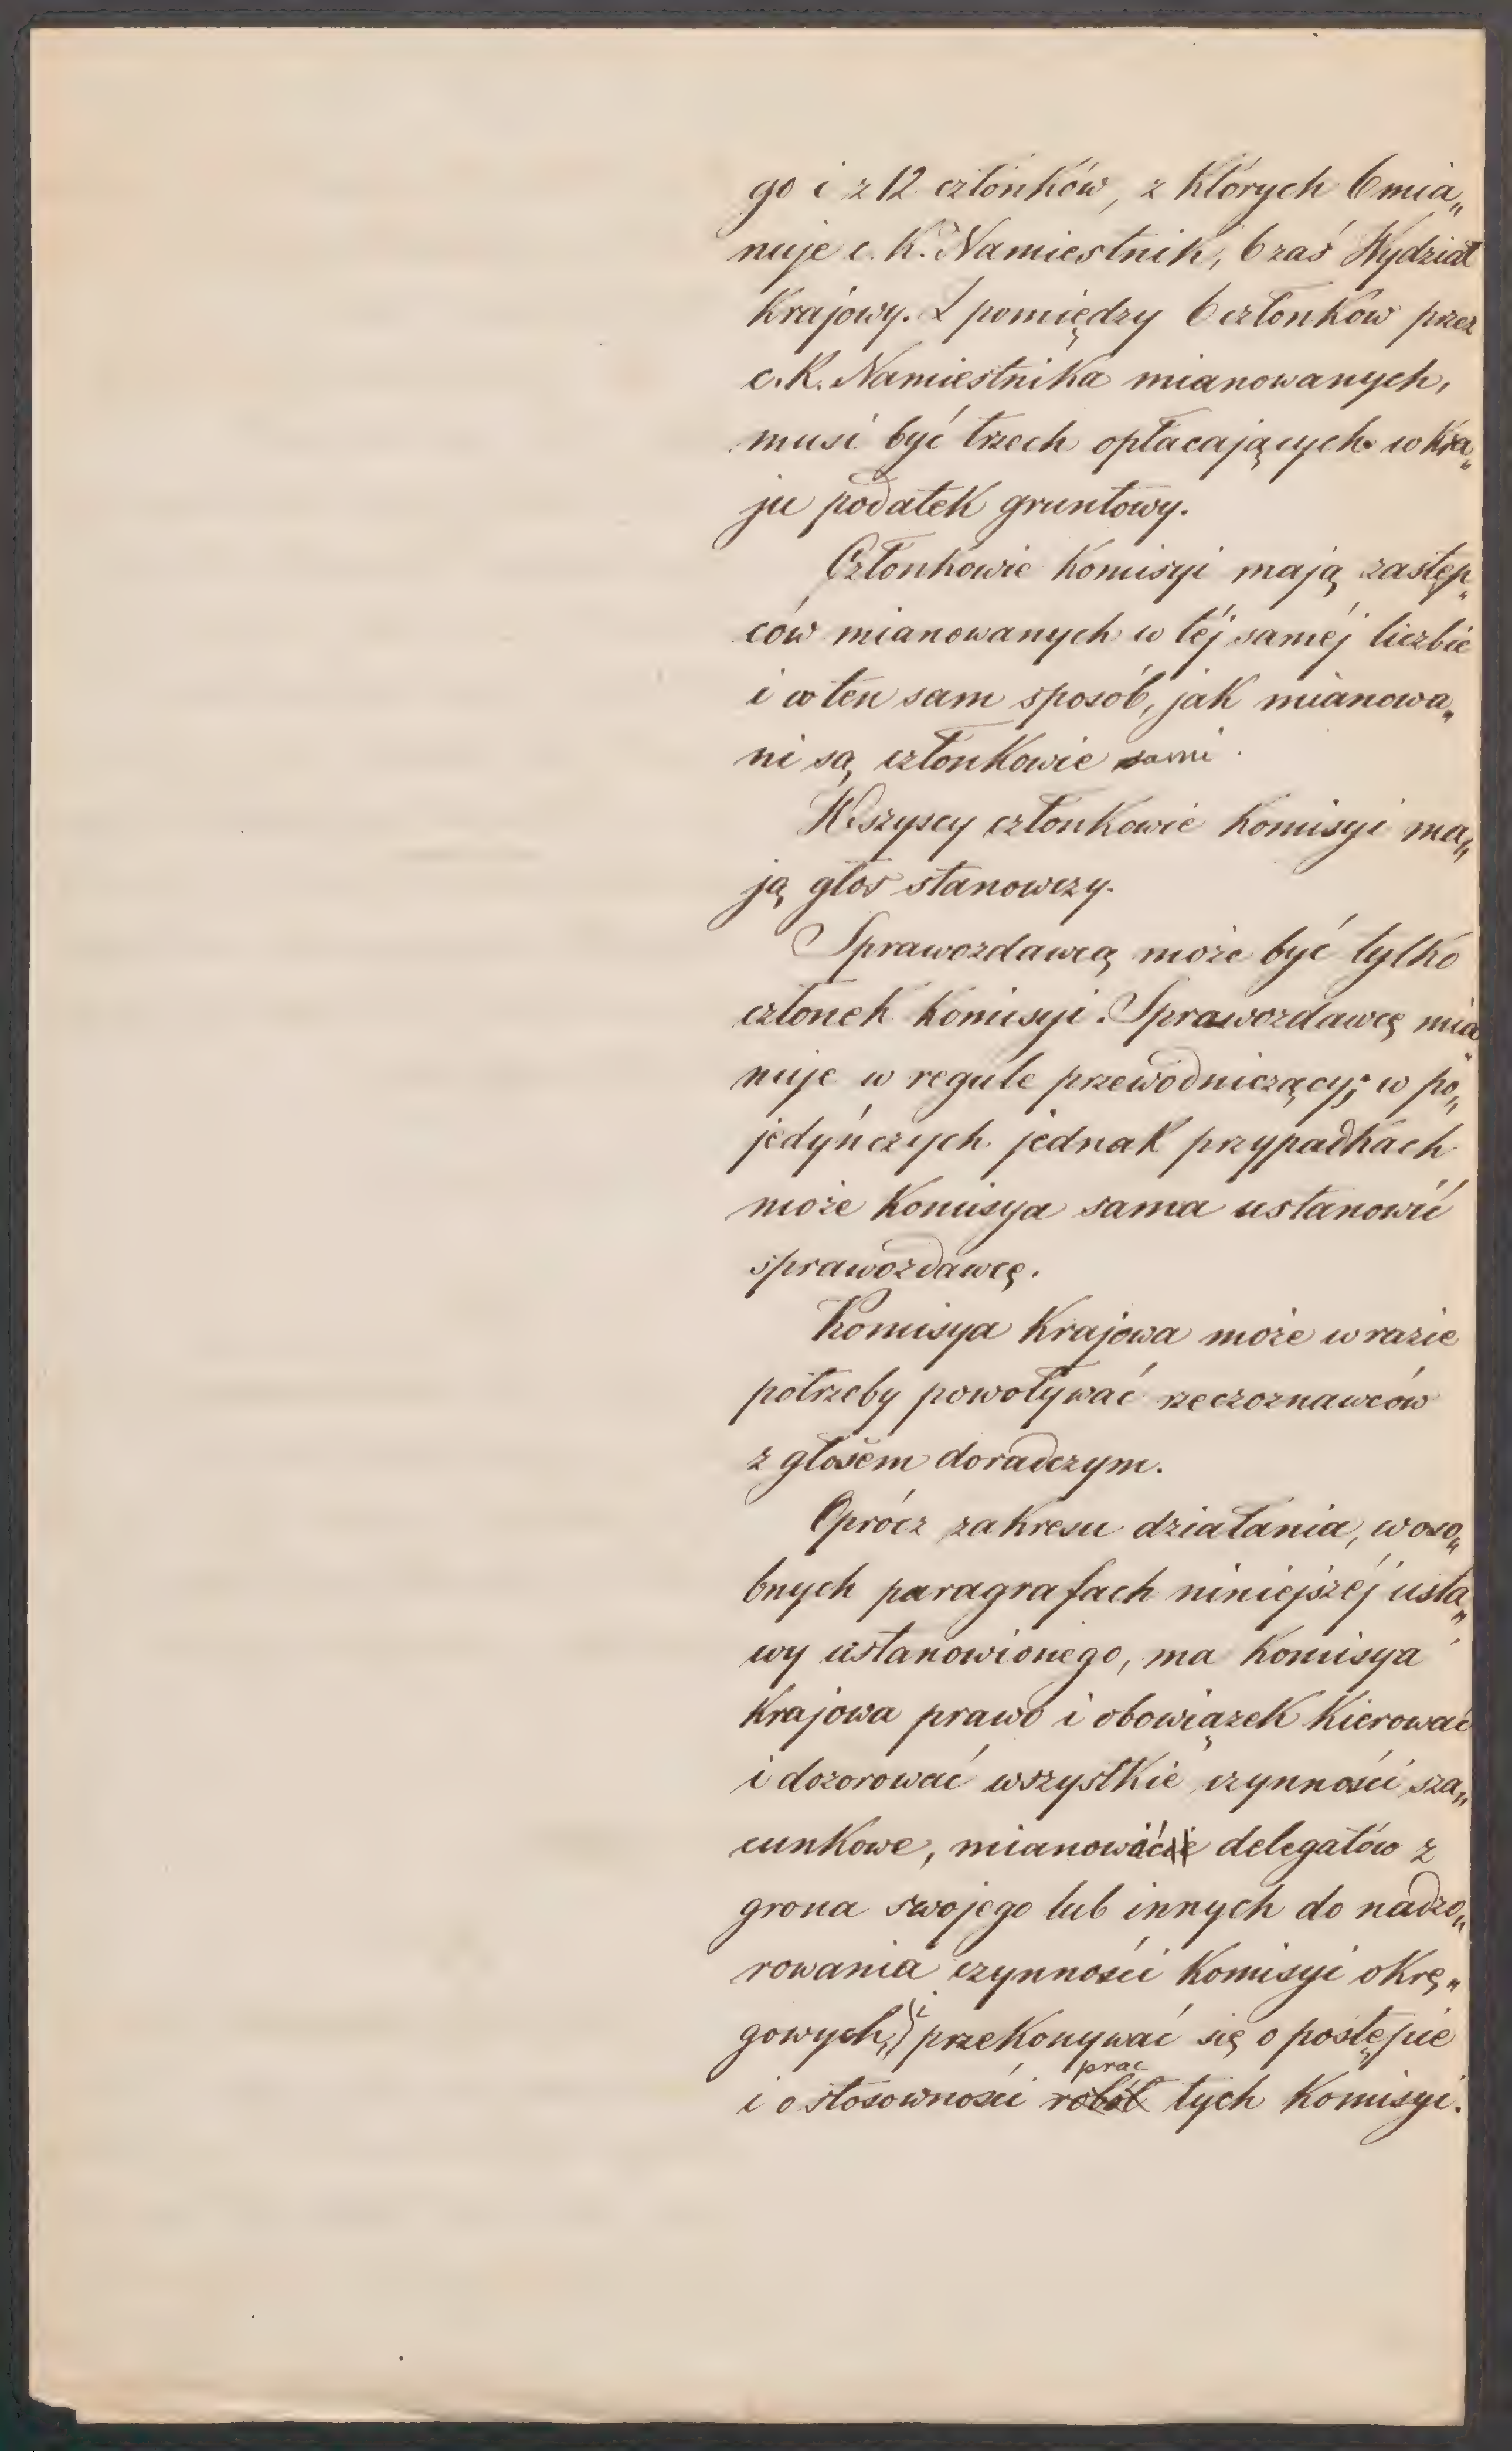 go i z 12 członków, z których 6 mia„
nuje c. K. Namiestnik, 6 zaś Wydział
Krajowy. Z pomiędzy 6 członków przez
c. K. Namiestnika mianowanych,
musi być trzech opłacających w kra„
ju podatek gruntowy.
Członkowie Komisyi mają zastęp„
ców mianowanych w téj saméj liczbie
i w ten sam sposób, jak mianowa„
ni są członkowie sami.
Wszyscy członkowie Komisyi ma„
ją głos stanowczy.
Sprawozdawcą może być tylko
członek Komisyi. Sprawozdawcę mia„
nuje w regule przewodniczący; w po„
jedyńczych jednak przypadkach
może Komisya sama ustanowić
sprawozdawcę.
Komisya Krajowa może w razie
potrzeby powoływać rzeczoznawców
z głosem doradczym.
Oprócz zakresu działania, w oso„
bnych paragrafach niniejszéj usta„
wy ustanowionego, ma Komisya
Krajowa prawo i obowiązek Kierować
i dozorować wszystkie czynności sza„
cunkowe, mianować delegatów z
grona swojego lub innych do nadzo„
rowania czynności Komisyi okrę„
gowych, i przekonywać się o postępie
i o stosowności robót prac tych Komisyi.